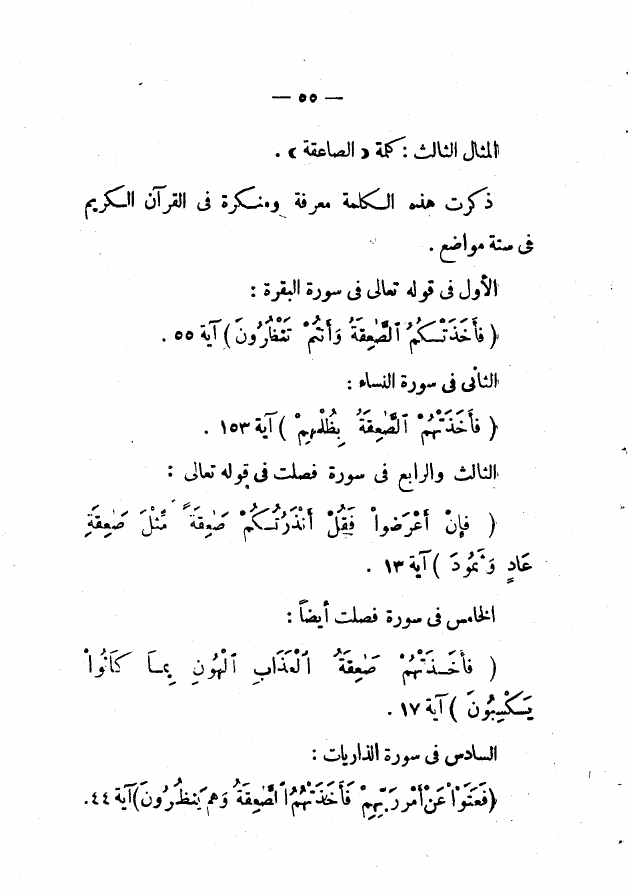 — ٥٥ —
المثال الثالث : كلمة « الصاعقة » .
ذكرت هذه الكلمة معرفة ومنكرة فى القرآن الكريم
فى ستة مواضع .
الأول فى قوله تعالى فى سورة البقرة :
( فَأَخَذَتْكُمُ ٱلصَّٰعِقَةُ وَأَنتُمْ تَنظُرُونَ ) آية ٥٥ .
الثانى فى سورة النساء :
( فَأَخَذَتْهُمُ ٱلصَّٰعِقَةُ بِظُلْمِهِمْ ) آية ١٥٣ .
الثالث والرابع فى سورة فصلت فى قوله تعالى :
( فإِنْ أَعْرَضواْ فَقُلْ أَنذَرْتُكُمْ صَٰعِقَةً مِّثْلَ صَٰعِقَةِ
عَادٍ وَثَمُودَ ) آية ١٣ .
الخامس فى سورة فصلت أيضاً :
( فَأَخَذَتْهُمْ صَٰعِقَةُ ٱلْعَذَابِ ٱلْهُونِ بِمـا كَانُواْ
يَكْسِبُونَ ) آية ١٧ .
السادس فى سورة الذاريات :
(فَعَتَوْاْ عَنْ أَمْرِ رَبِّهِمْ فَأَخَذَتْهُمُ ٱلصَّٰعِقَةُ وَهُمْ يَنظُرُونَ) آية ٤٤.